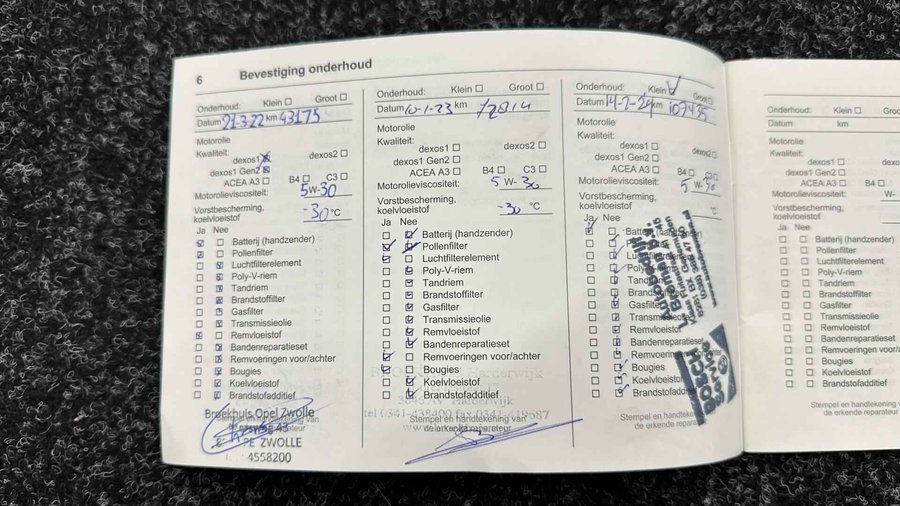 6 Bevestiging onderhoud
Onderhoud: Klein Groot
Datum 21-3-22 km 43175
Motorolie
Kwaliteit:
dexos1 dexos2
dexos1 Gen2
ACEA A3 B4 C3
Motorolieviscositeit: 5W-30
Vorstbescherming,
koelvloeistof -30 °C
Ja Nee
Batterij (handzender)
Pollenfilter
Luchtfilterelement
Poly-V-riem
Tandriem
Brandstoffilter
Gasfilter
Transmissieolie
Remvloeistof
Bandenreparatieset
Remvoeringen voor/achter
Bougies
Koelvloeistof
Brandstofadditief
Broekhuis Opel Zwolle
Stempel en handtekening van
ZWOLLE
4558200
Onderhoud: Klein Groot
Datum 10-1-23 km
Motorolie
Kwaliteit:
dexos1 dexos2
dexos1 Gen2
ACEA A3 B4 C3
Motorolieviscositeit: 5 W-30
Vorstbescherming,
koelvloeistof -30 °C
Ja Nee
Batterij (handzender)
Pollenfilter
Luchtfilterelement
Poly-V-riem
Tandriem
Brandstoffilter
Gasfilter
Transmissieolie
Remvloeistof
Bandenreparatieset
Remvoeringen voor/achter
Harderwijk
Bougies
Koelvloeistof
Brandstofadditief
Harderwijk
tel 0341-438400 fax 0341-419687
Stempel en handtekening van
de erkende reparateur
Onderhoud: Klein Groot
Datum km 107435
Motorolie
Kwaliteit:
dexos1 dexos2
dexos1 Gen2
ACEA A3 B4 C3
Motorolieviscositeit: 5 W-30
Vorstbescherming,
koelvloeistof °C
Ja Nee
Pollenfilter
Poly-V-riem
Gasfilter
Transmissieolie
Remvloeistof
Bandenreparatieset
Bougies
Koelvloeistof
Brandstofadditief
BOSCH
Service
Stempel en handtekening
de erkende
Onderhoud: Klein
Datum km
Motorolie
Kwaliteit:
dexos1
dexos1 Gen2
ACEA A3 B4
Motorolieviscositeit: W-
Vorstbescherming,
koelvloeistof
Ja Nee
Batterij (handzender)
Pollenfilter
Luchtfilterelement
Poly-V-riem
Tandriem
Brandstoffilter
Gasfilter
Transmissieolie
Remvloeistof
Bandenreparatieset
Remvoeringen voor/achter
Bougies
Koelvloeistof
Brandstofadditief
Stempel en handtekening
de erkende reparateur